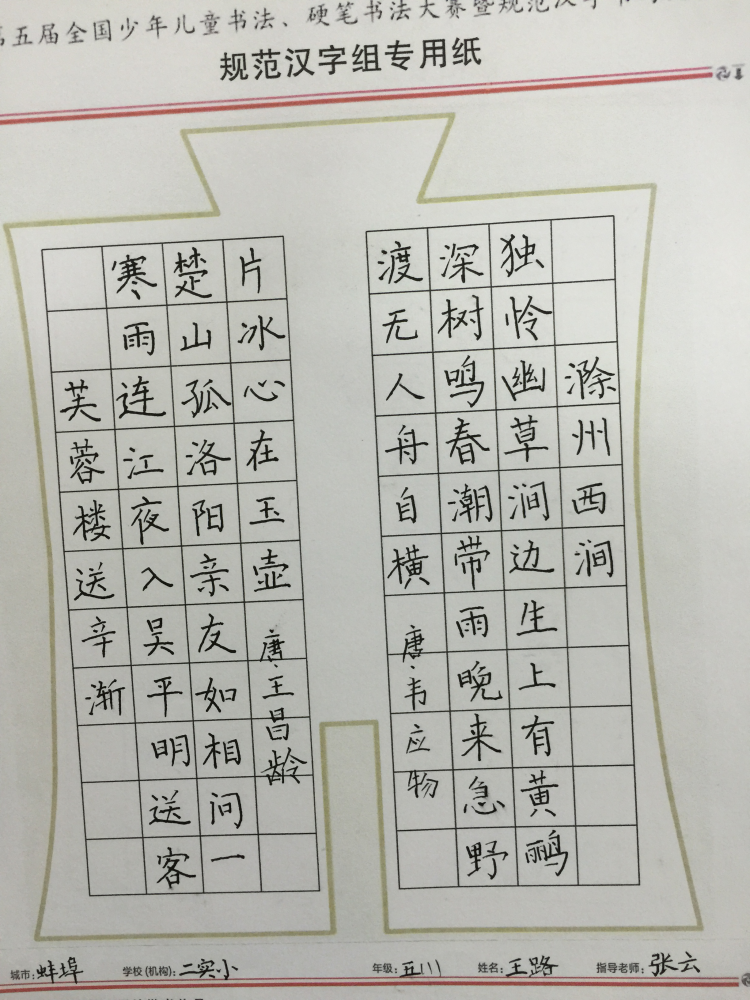 第五届全国少年儿童书法、硬笔书法大赛暨规范汉字书
规范汉字组专用纸
滁州西涧
独怜幽草涧边生上有黄鹂
深树鸣春潮带雨晚来急野
渡无人舟自横
唐·韦应物
芙蓉楼送辛渐
寒雨连江夜入吴平明送客
楚山孤洛阳亲友如相问一
片冰心在玉壶
唐·王昌龄
城市:蚌埠 学校(机构):二实小 年级:五(1) 姓名:王路 指导老师:张云